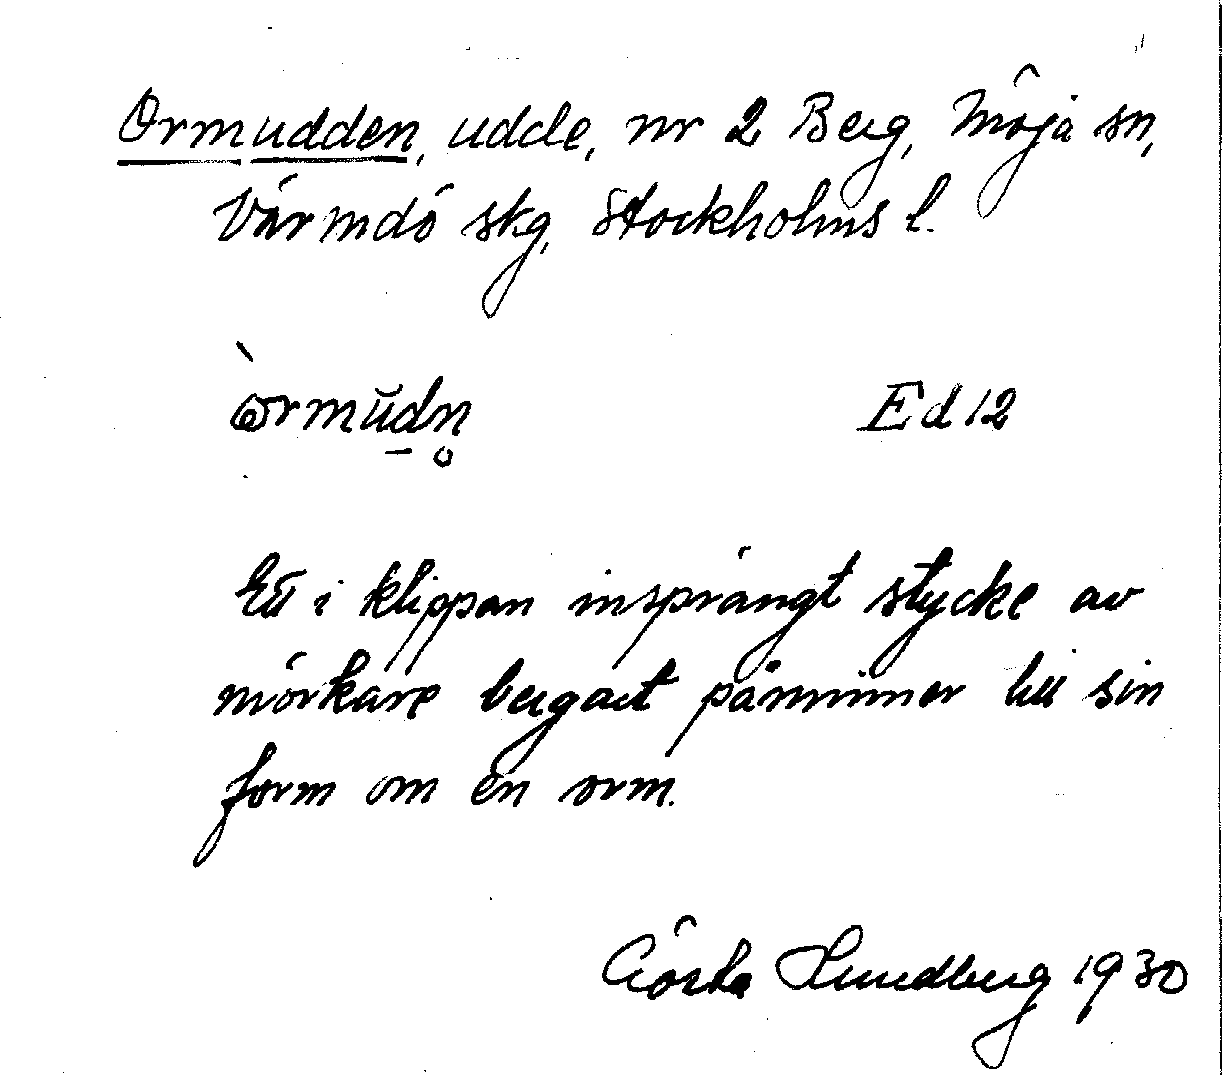 Ormudden, udde, nr 2 Berg, Möja sn,
Värmdö skg, Stockholms l.
Ed 12
Ett i klippan insprängt stycke av
mörkare bergart påminner till sin
form om en orm.
Gösta Lundberg 1930